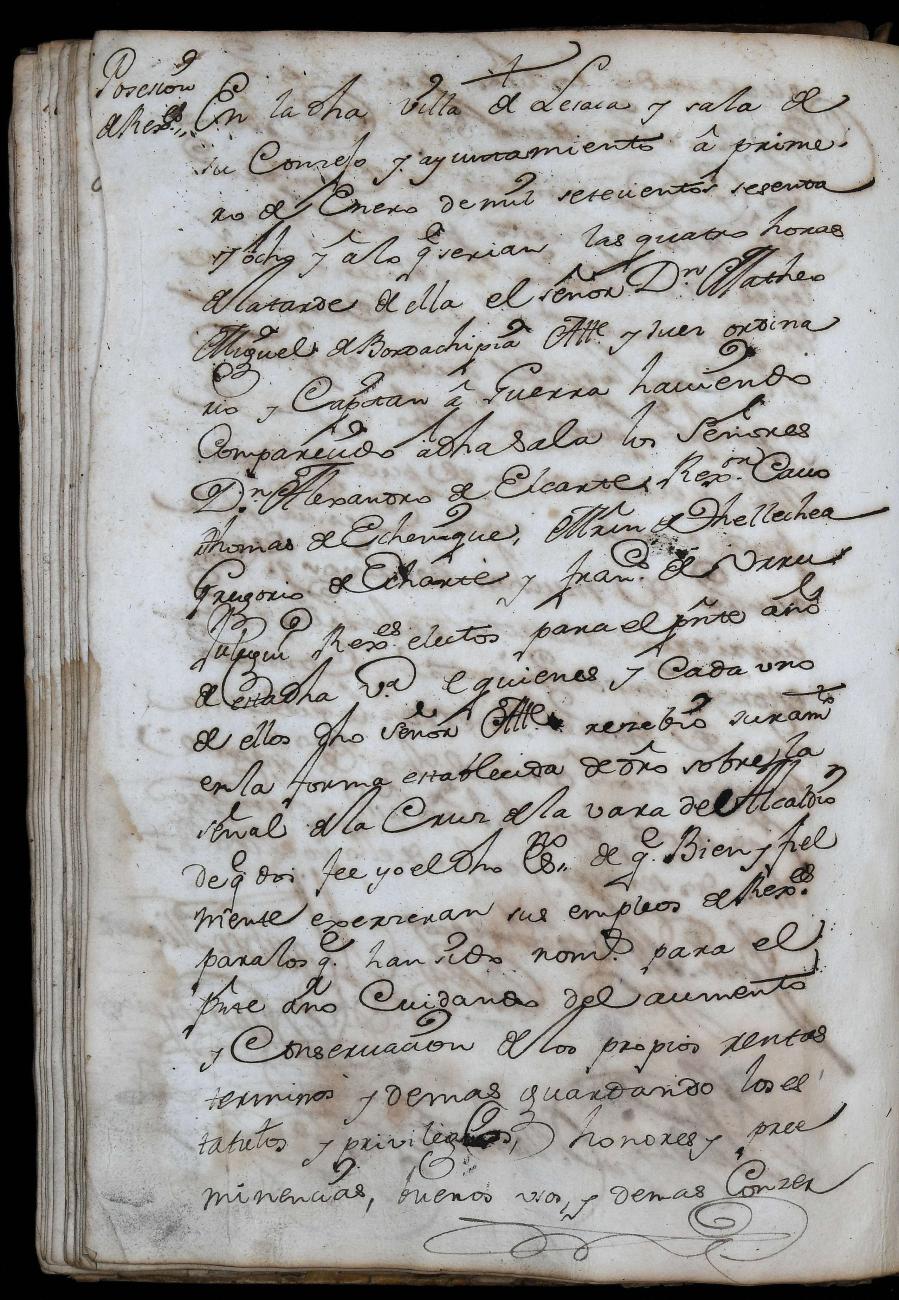 Posesion
de Rex.es
En la dha Villa de Lesaca y sala de
su Conzejo y ayuntamiento â prime-
ro de Enero de mil setecientos sesenta
y ocho y a lo q serian las quatro horas
de la tarde de ella el señor Dn Matheo
Miguel de Bordachipia Alle y Juez ordina
rio y Capitan â Guerra haviendo
Comparecido â dha sala los Señores
Dn Alexandro de Elcarte Rex.or Cavo
thomas de Echenique, Mrn de Thellechea
Gregorio de Echarte y Franco de Urru
Rex.es electos para el prnte año
de esta dha Va e quienes y Cada uno
de ellos dho señor Alle rezebio juramto
en la forma establecida de dro sobre la
señal de la Cruz de la vara de Alcaldio
de q doi fee yo el dho Es.no de q. Bien y fiel
mente exerzeran sus empleos de Rex.es
para los q. han sido nom.dos para el
prnte año Cuidando del aumento
y Conservacion de los propios rentas
terminos y demas guardando los es
tatutos y privilegios, honores y pree
minencias, buenos usos, y demas Conzer